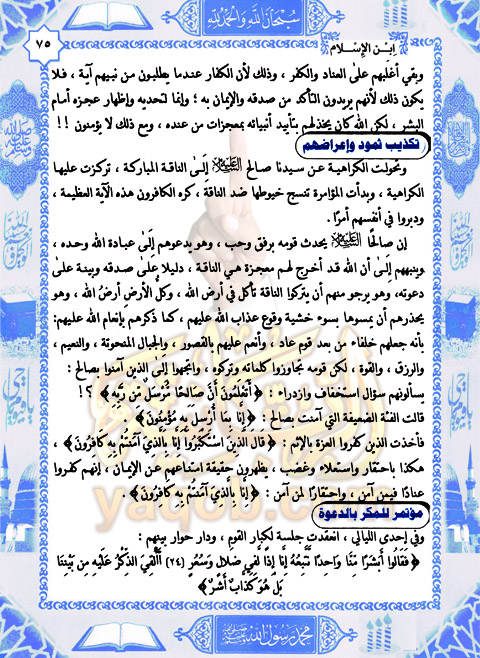 سبحان الله والحمد لله
٧٥
ابن الإسلام
وبقي أغلبهم على العناد والكفر ، وذلك لأن الكفار عندما يطلبون من نبيهم آية ، فلا
يكون ذلك لأنهم يريدون التأكد من صدقه والإيمان به ؛ وإنما لتحديه وإظهار عجزه أمام
البشر ، لكن الله كان يخذلهم بتأييد أنبيائه بمعجزات من عنده ، ومع ذلك لا يؤمنون !!
تكذيب ثمود وإعراضهم
وتحولت الكراهية عن سيدنا صالح عليه السلام إلى الناقة المباركة ، تركزت عليها
الكراهية ، وبدأت المؤامرة تنسج خيوطها ضد الناقة ، كره الكافرون هذه الآية العظيمة ،
ودبروا في أنفسهم أمرًا .
إن صالحًا عليه السلام يحدث قومه برفق وحب ، وهو يدعوهم إلى عبادة الله وحده ،
وينبههم إلى أن الله قد أخرج لهم معجزة هي الناقة ، دليلا على صدقه وبينة على
دعوته، وهو يرجو منهم أن يتركوا الناقة تأكل في أرض الله ، وكل الأرض أرض الله ، وهو
يحذرهم أن يمسوها بسوء خشية وقوع عذاب الله عليهم ، كما ذكرهم بإنعام الله عليهم:
بأنه جعلهم خلفاء من بعد قوم عاد ، وأنعم عليهم بالقصور ، والجبال المنحوتة ، والنعيم ،
والرزق ، والقوة ، لكن قومه تجاوزوا كلماته وتركوه ، واتجهوا إلى الذين آمنوا بصالح :
يسألونهم سؤال استخفاف وازدراء : ﴿ أَتَعْلَمُونَ أَنَّ صَالِحًا مُّرْسَلٌ مِّن رَّبِّهِ ﴾ ؟!
قالت الفئة الضعيفة التي آمنت بصالح : ﴿ إِنَّا بِمَا أُرْسِلَ بِهِ مُؤْمِنُونَ ﴾
فأخذت الذين كفروا العزة بالإثم : ﴿ قَالَ الَّذِينَ اسْتَكْبَرُوا إِنَّا بِالَّذِي آمَنتُم بِهِ كَافِرُونَ ﴾ ،
هكذا باحتقار واستعلاء وغضب ، يظهرون حقيقة امتناعهم عن الإيمان ، إنهم كفروا
عنادًا فيمن آمن ، واحتقارًا لمن آمن : ﴿ إِنَّا بِالَّذِي آمَنتُم بِهِ كَافِرُونَ ﴾ .
مؤتمر للمكر بالدعوة
وفي إحدى الليالي ، انعقدت جلسة لكبار القوم ، ودار حوار بينهم :
﴿ فَقَالُوا أَبَشَرًا مِّنَّا وَاحِدًا نَّتَّبِعُهُ إِنَّا إِذًا لَّفِي ضَلَالٍ وَسُعُرٍ [٢٤] أَأُلْقِيَ الذِّكْرُ عَلَيْهِ مِن بَيْنِنَا
بَلْ هُوَ كَذَّابٌ أَشِرٌ ﴾
محمد رسول الله